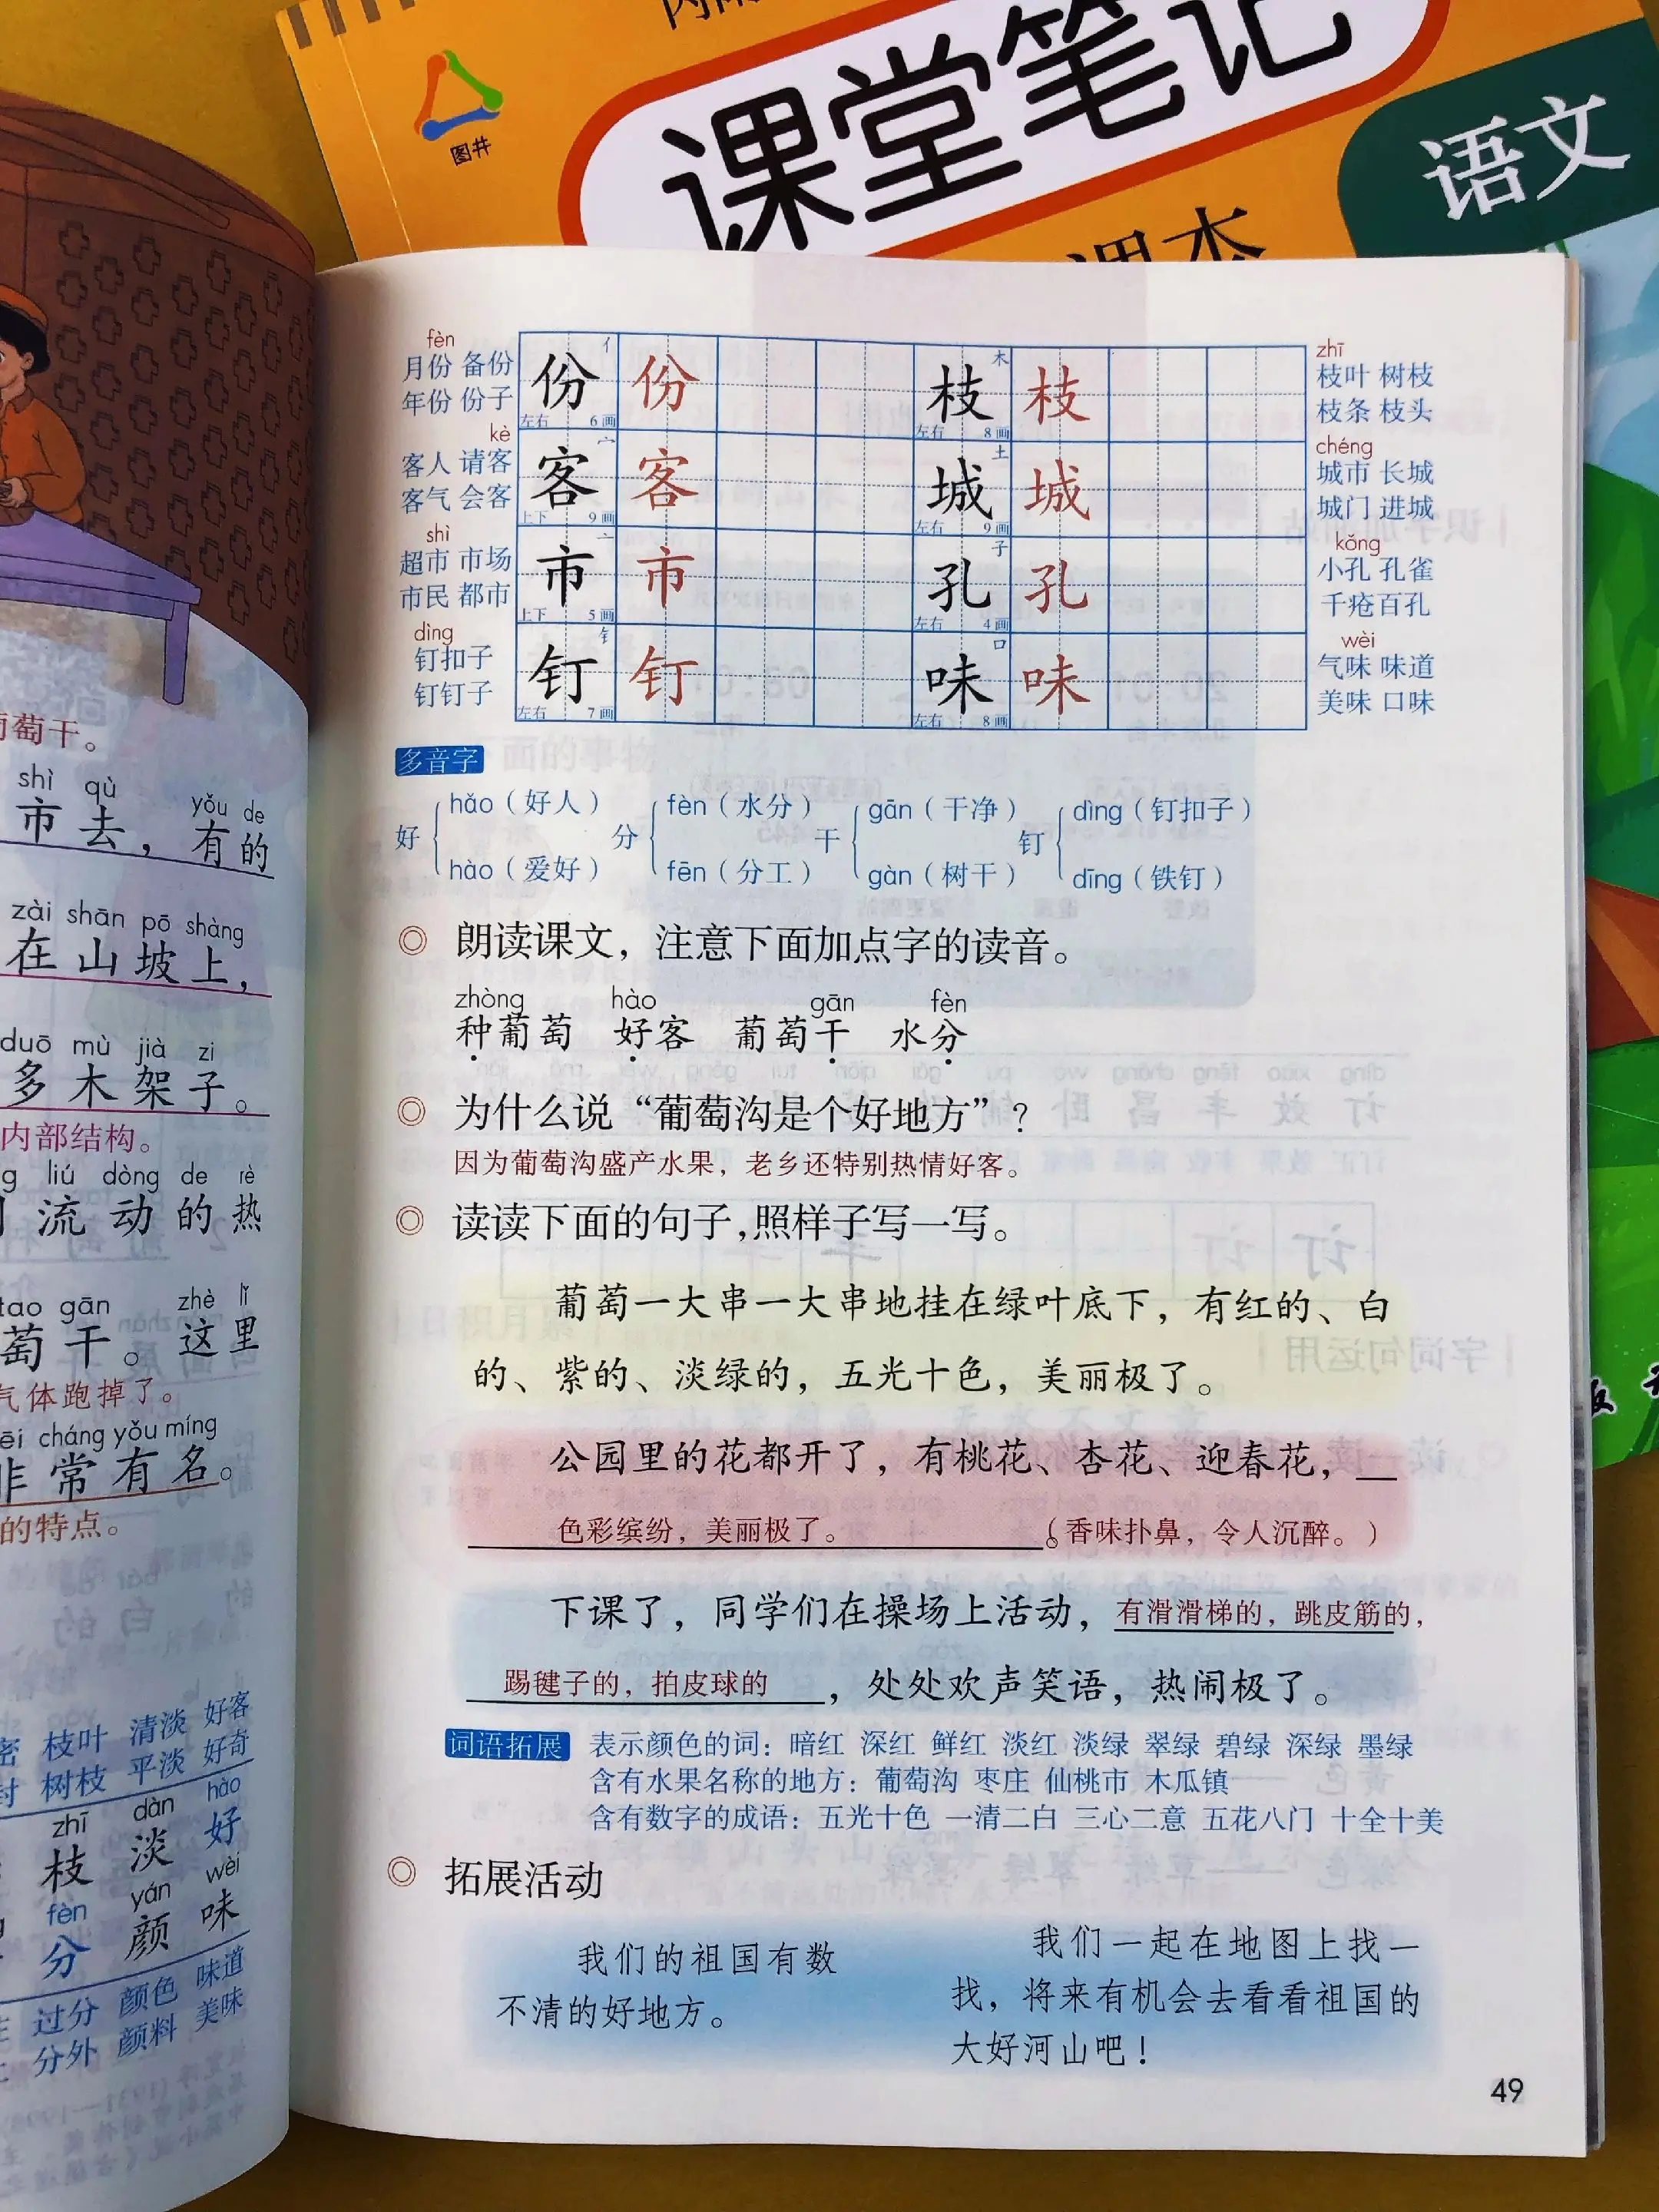 课堂笔记
语文
图井
课本
葡萄干。
shì qù yǒu de
市去，有的
zài shān pō shàng
在山坡上，
duō mù jià zi
多木架子。
内部结构。
liú dòng de rè
流动的热
gān zhè lǐ
萄干。这里
气体跑掉了。
cháng yǒu míng
非常有名。
的特点。
枝叶 清淡 好客
树枝 平淡 好奇
zhī dàn hào
枝 淡 好
fèn yán wèi
分 颜 味
过分 颜色 味道
分外 颜料 美味
fèn
月份 备份
年份 份子
亻
份 份
左右 6画
木
枝 枝
左右 8画
zhī
枝叶 树枝
枝条 枝头
kè
客人 请客
客气 会客
宀
客 客
上下 9画
土
城 城
左右 9画
chéng
城市 长城
城门 进城
shì
超市 市场
市民 都市
亠
市 市
上下 5画
子
孔 孔
左右 4画
kǒng
小孔 孔雀
千疮百孔
dìng
钉扣子
钉钉子
钅
钉 钉
左右 7画
口
味 味
左右 8画
wèi
气味 味道
美味 口味
多音字
hǎo（好人） fèn（水分） gān（干净） dìng（钉扣子）
好 分 干 钉
hào（爱好） fēn（分工） gàn（树干） dīng（铁钉）
◎ 朗读课文，注意下面加点字的读音。
zhòng hào gān fèn
种葡萄 好客 葡萄干 水分
◎ 为什么说“葡萄沟是个好地方”？
因为葡萄沟盛产水果，老乡还特别热情好客。
◎ 读读下面的句子，照样子写一写。
葡萄一大串一大串地挂在绿叶底下，有红的、白
的、紫的、淡绿的，五光十色，美丽极了。
公园里的花都开了，有桃花、杏花、迎春花，
色彩缤纷，美丽极了。 。（香味扑鼻，令人沉醉。）
下课了，同学们在操场上活动，有滑滑梯的，跳皮筋的，
踢毽子的，拍皮球的，处处欢声笑语，热闹极了。
词语拓展 表示颜色的词：暗红 深红 鲜红 淡红 淡绿 翠绿 碧绿 深绿 墨绿
含有水果名称的地方：葡萄沟 枣庄 仙桃市 木瓜镇
含有数字的成语：五光十色 一清二白 三心二意 五花八门 十全十美
◎ 拓展活动
我们的祖国有数
不清的好地方。
我们一起在地图上找一
找，将来有机会去看看祖国的
大好河山吧！
49